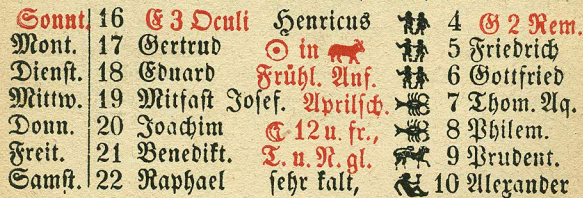 Sonnt. 16 E 3 Oculi Henricus 4 G 2 Rem.
Mont. 17 Gertrud ☉ in 5 Friedrich
Dienst. 18 Eduard Frühl. Anf. 6 Gottfried
Mittw. 19 Mitfast Josef. Aprilsch. 7 Thom. Aq.
Donn. 20 Joachim ☾ 12 u. fr., 8 Philem.
Freit. 21 Benedikt. T. u. N. gl. 9 Prudent.
Samst. 22 Raphael sehr kalt, 10 Alexander